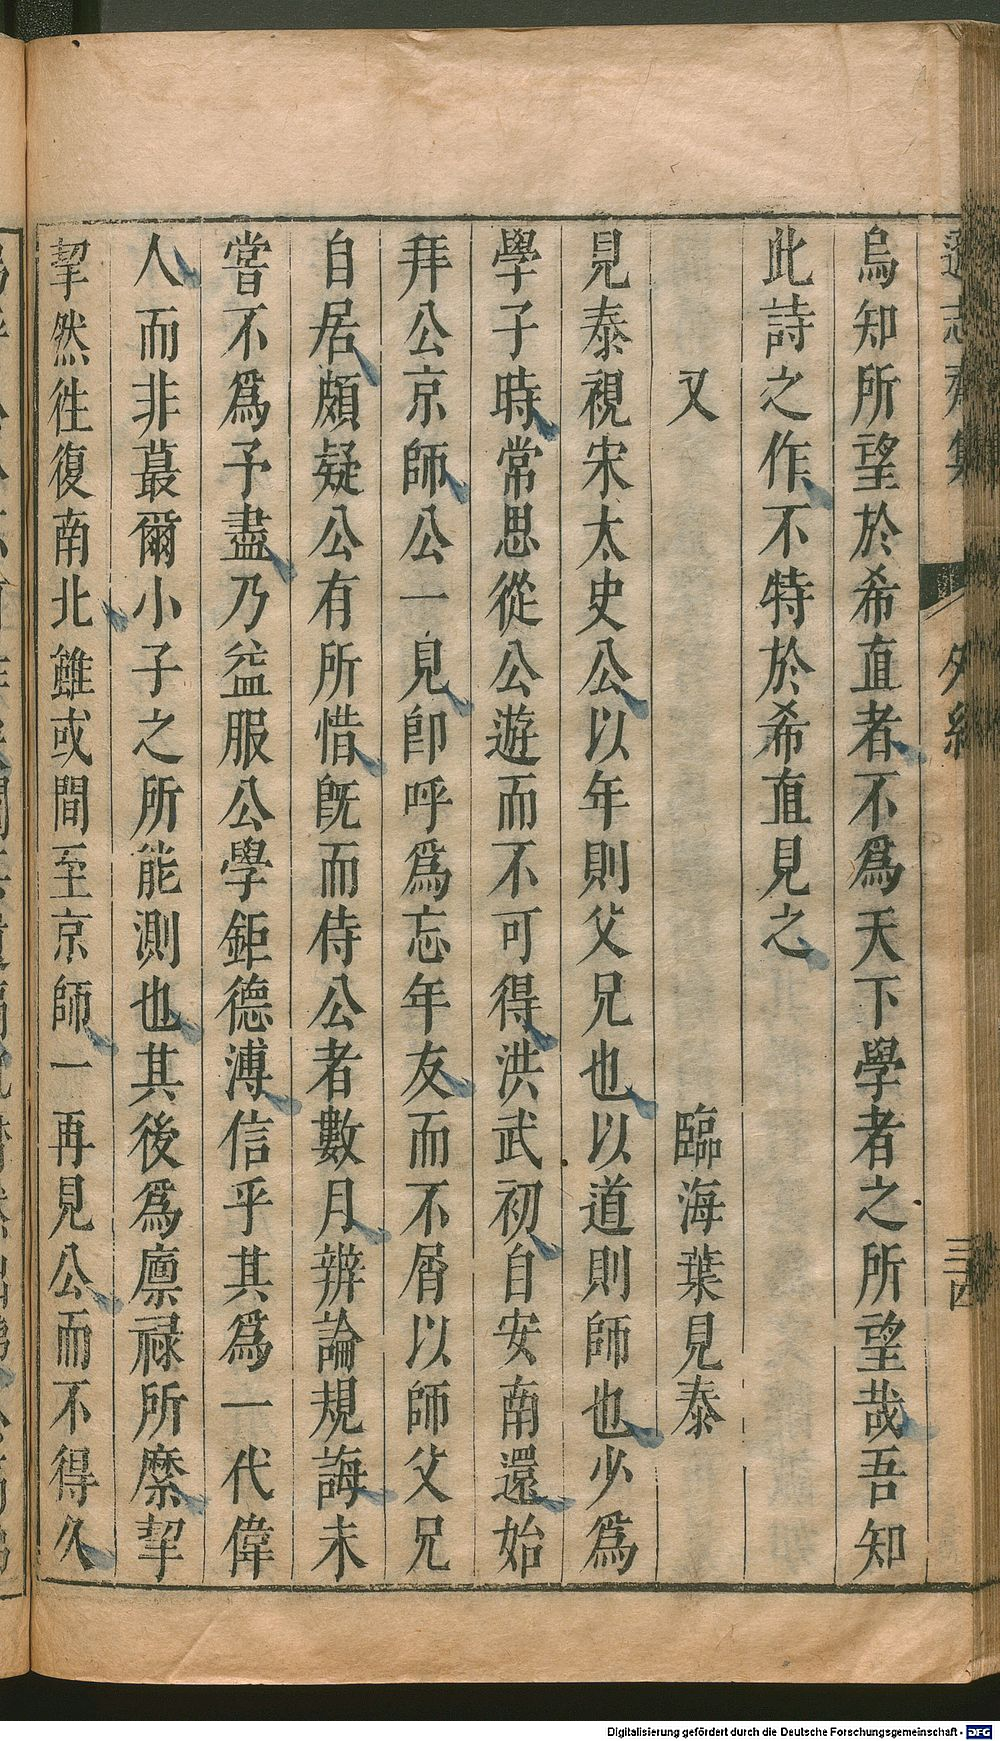 烏知所望於希直者不爲天下學者之所望哉吾知
此詩之作不特於希直見之
又　臨海葉見泰
見泰視宋太史公以年則父兄也以道則師也少爲
學子時常思從公遊而不可得洪武初自安南還始
拜公京師公一見卽呼爲忘年友而不屑以師父兄
自居頗疑公有所惜旣而侍公者數月辨論規誨未
嘗不爲予盡乃益服公學鉅德溥信乎其爲一代偉
人而非蕞爾小子之所能測也其後爲廪祿所縻挈
挈然徃復南北雖或間至京師一再見公而不得久
Digitalisierung gefördert durch die Deutsche Forschungsgemeinschaft - DFG